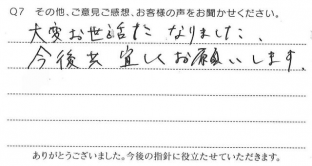 Q7 その他、ご意見ご感想、お客様の声をお聞かせください。
大変お世話になりました、
今後共宜しくお願いします.
ありがとうございました。今後の指針に役立たせていただきます。